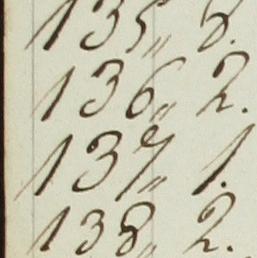 135„ 8.
136„ 2.
137„ 1.
138„ 2.